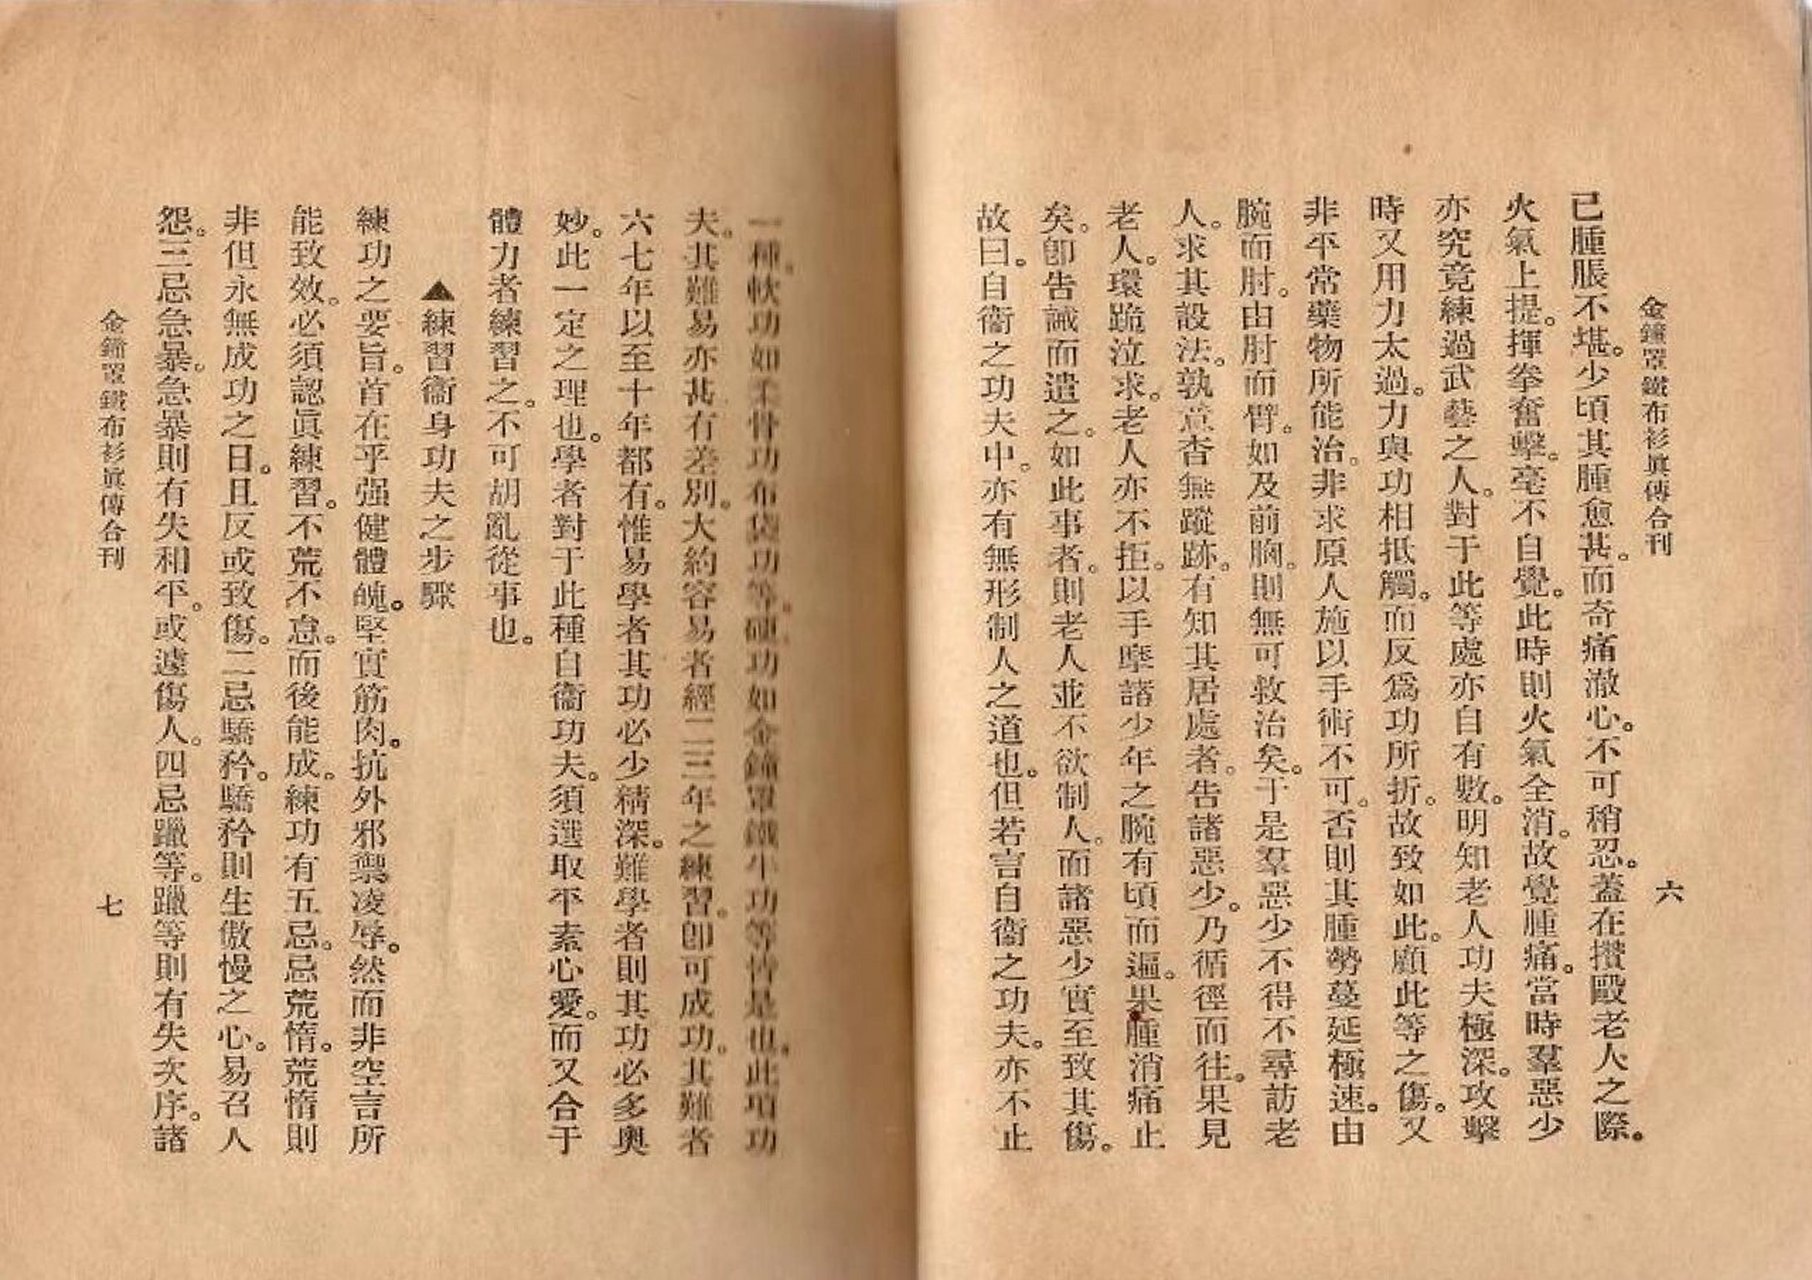 金鐘罩鐵布衫眞傳合刊
六
已腫脹不堪。少頃其腫愈甚。而奇痛澈心。不可稍忍。蓋在攢毆老人之際。
火氣上提。揮拳奮擊。毫不自覺。此時則火氣全消。故覺腫痛。當時羣惡少
亦究竟練過武藝之人。對于此等處亦自有數。明知老人功夫極深。攻擊
時又用力太過。力與功相抵觸。而反爲功所折。故致如此。顧此等之傷。又
非平常藥物所能治。非求原人施以手術不可。否則其腫勢蔓延極速。由
腕而肘。由肘而臂。如及前胸。則無可救治矣。于是羣惡少不得不尋訪老
人。求其設法。孰意杳無蹤跡。有知其居處者。告諸惡少。乃循徑而往。果見
老人。環跪泣求。老人亦不拒。以手摩諸少年之腕有頃而遍。果腫消痛止
矣。卽告誡而遣之。如此事者。則老人並不欲制人。而諸惡少實至致其傷。
故曰。自衞之功夫中。亦有無形制人之道也。但若言自衞之功夫。亦不止
一種。軟功如柔骨功布袋功等。硬功如金鐘罩鐵牛功等皆是也。此項功
夫。其難易亦甚有差別。大約容易者經二三年之練習。卽可成功。其難者
六七年以至十年都有。惟易學者其功必少精深。難學者則其功必多奧
妙。此一定之理也。學者對于此種自衞功夫。須選取平素心愛。而又合于
體力者練習之。不可胡亂從事也。
▲練習衞身功夫之步驟
練功之要旨。首在乎强健體魄。堅實筋肉。抗外邪禦凌辱。然而非空言所
能致效。必須認眞練習。不荒不怠。而後能成。練功有五忌。忌荒惰。荒惰則
非但永無成功之日。且反或致傷。二忌驕矜。驕矜則生傲慢之心。易召人
怨。三忌急暴。急暴則有失和平。或遽傷人。四忌躐等。躐等則有失次序。諸
金鐘罩鐵布衫眞傳合刊
七